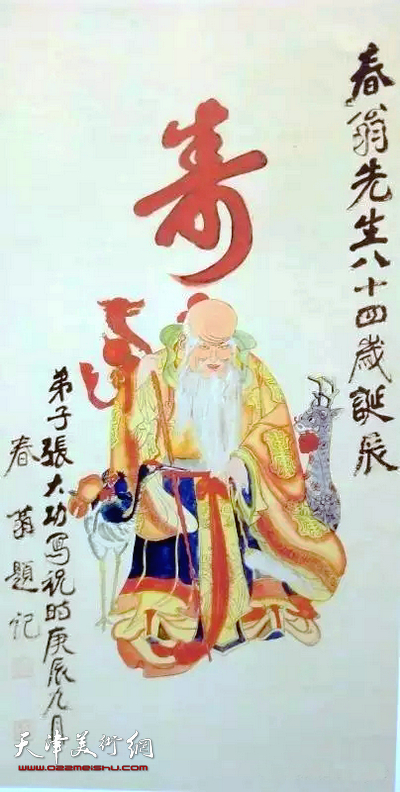 春翁先生八十四歲誕辰
寿
弟子張大功寫祝时庚辰九月
春翁題记
天津美術網
www.022meishu.com